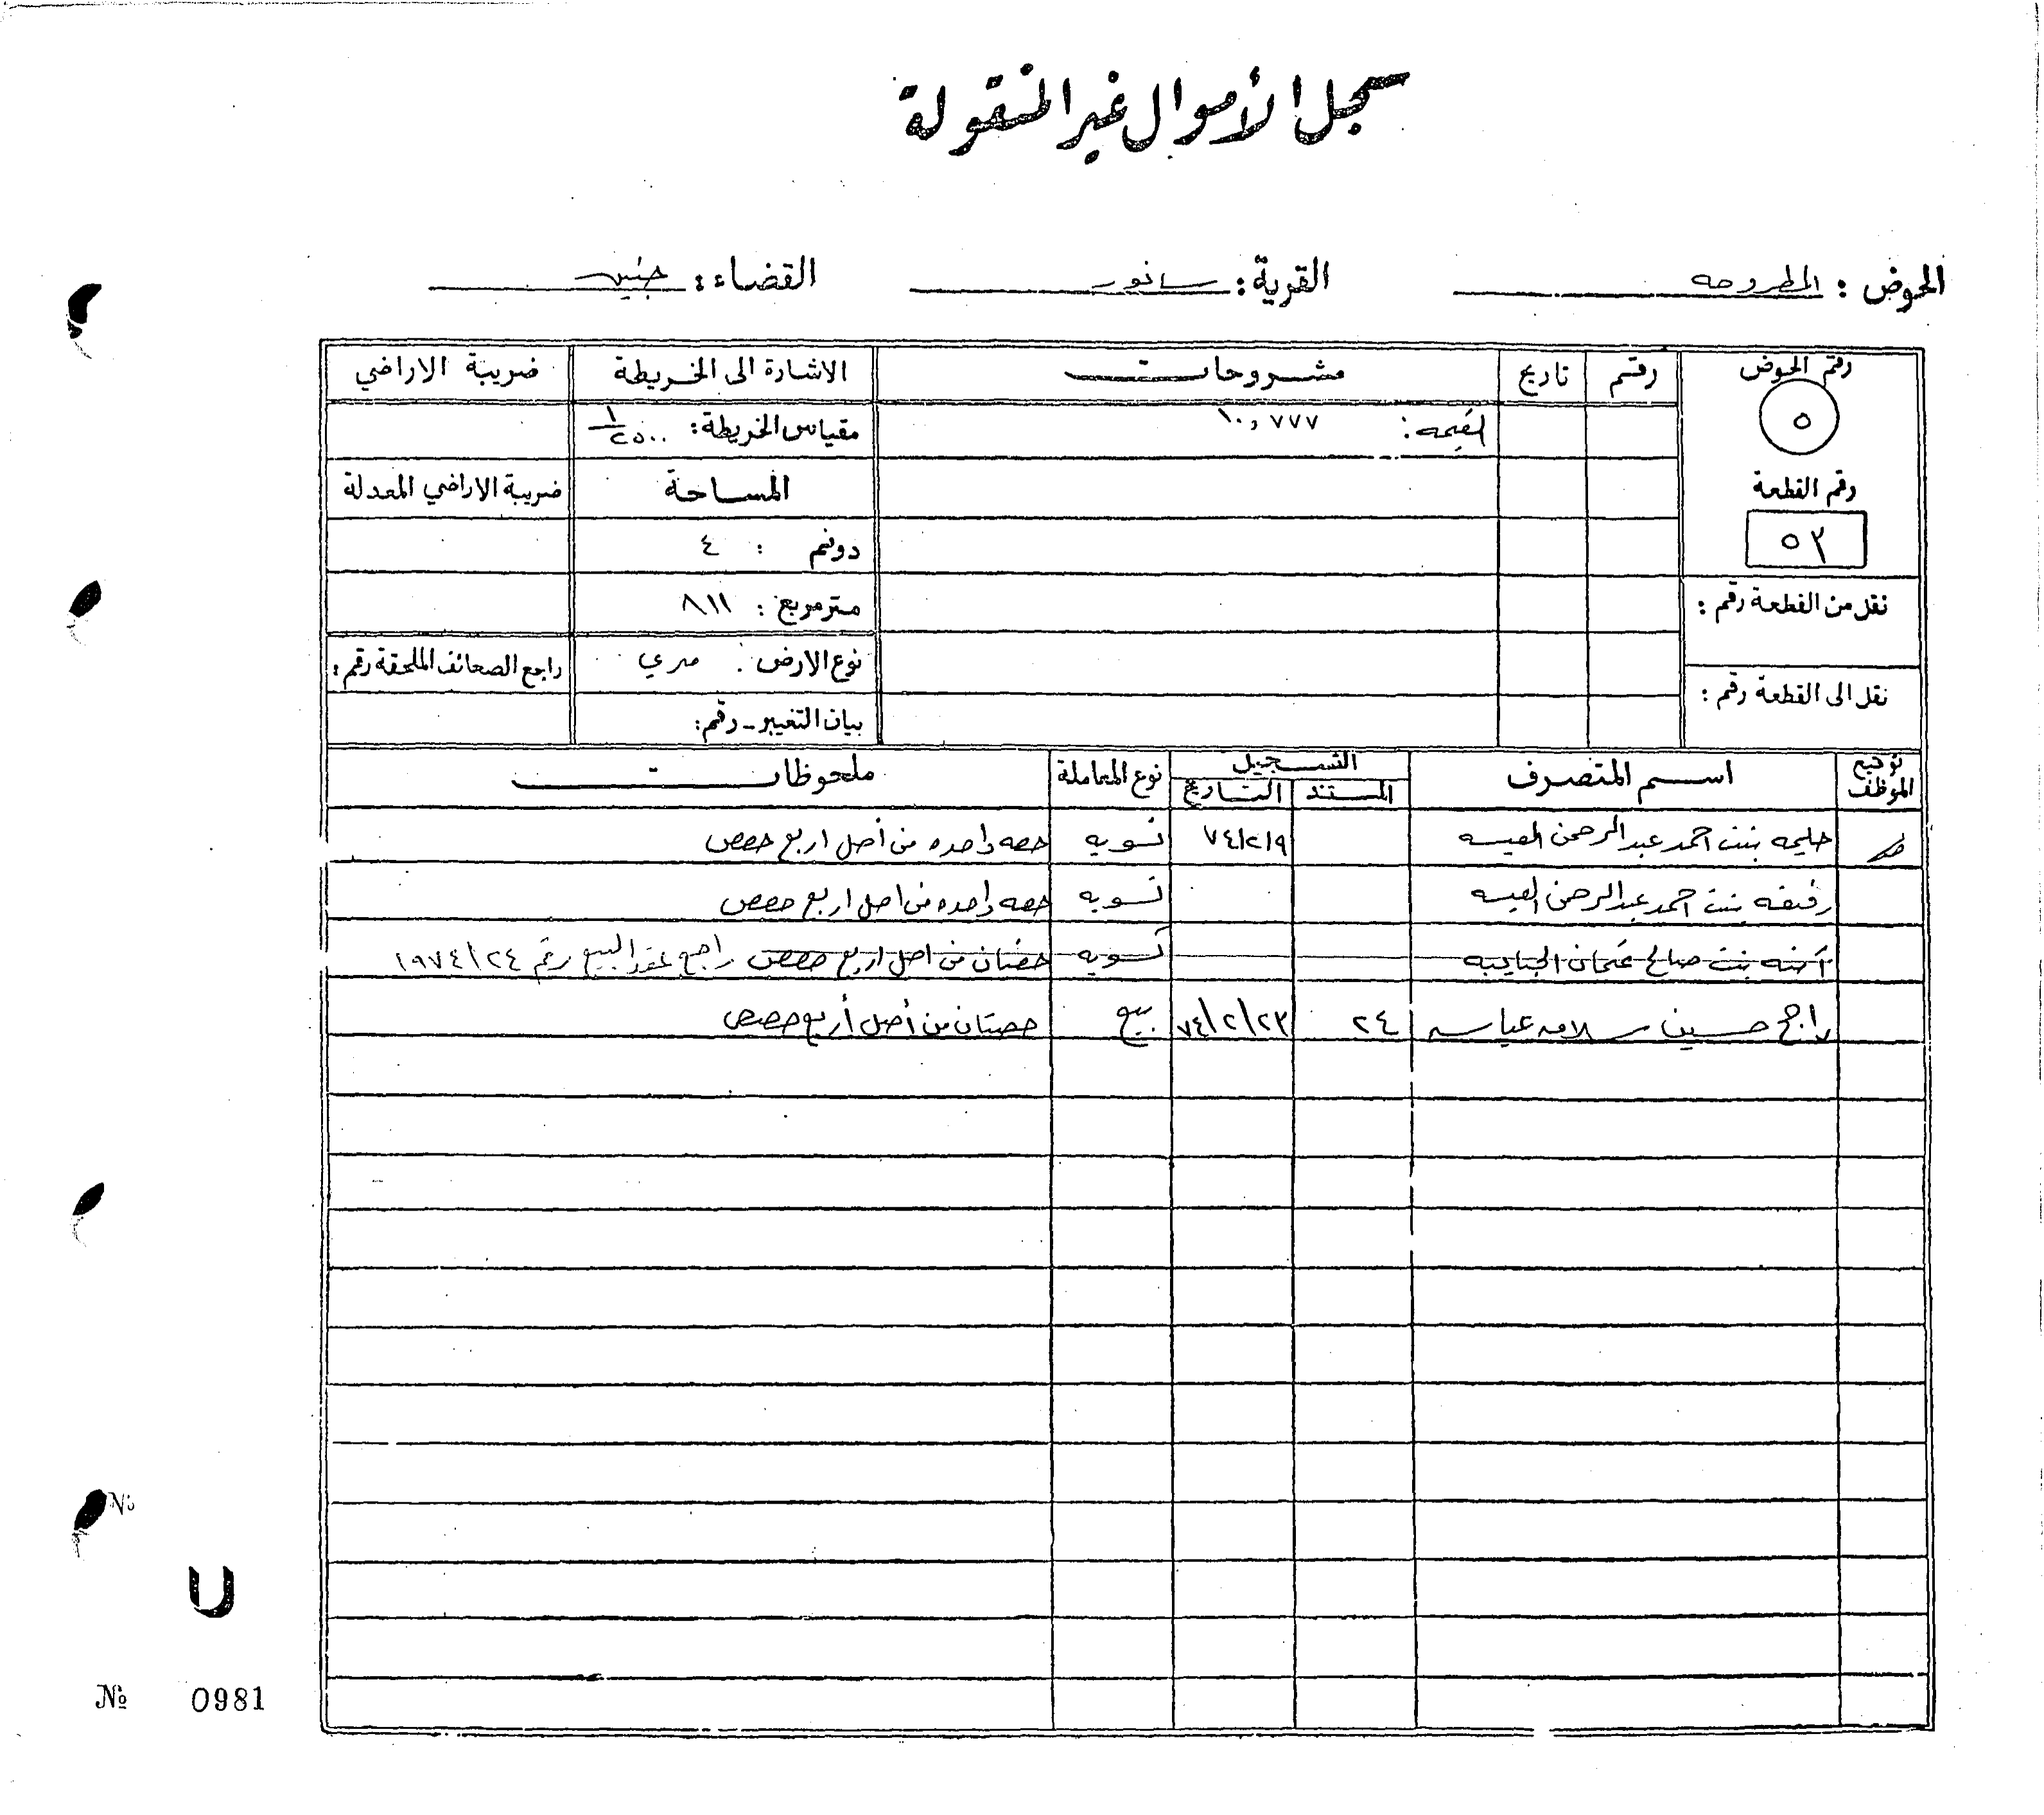 سجل الأموال غير المنقولة
الحوض : المطروحه القرية : سانور القضاء : جنين
رقم الحوض رقم تاريخ مشروحات الاشارة الى الخريطة ضريبة الاراضي
٥ القيمه : ١٠,٧٧٧ مقياس الخريطة : ١/٢٥٠٠
رقم القطعة المساحة ضريبة الاراضي المعدلة
٥٢ دونم : ٤
نقل من القطعة رقم : متر مربع : ٨١١
نوع الارض : ميري راجع الصحائف الملحقة رقم :
نقل الى القطعة رقم : بيان التغيير - رقم :
توقيع الموظف اسم المتصرف التسجيل نوع المعاملة ملحوظات
المستند التاريخ
حليمه بنت احمد عبد الرحمن العيسه ٧٤/٢/٩ تسويه حصه واحده من أصل اربع حصص
رفيقه بنت احمد عبد الرحمن العيسه تسويه حصه واحده من اصل اربع حصص
آمنه بنت صالح عثمان تسويه حصتان من اصل اربع حصص راجع عقد البيع رقم ١٩٧٤/٢٤
راجح حسين سلامه عياسه ٢٤ ٧٤/٢/٢٣ بيع حصتان من أصل أربع حصص
№
U
№ 0981